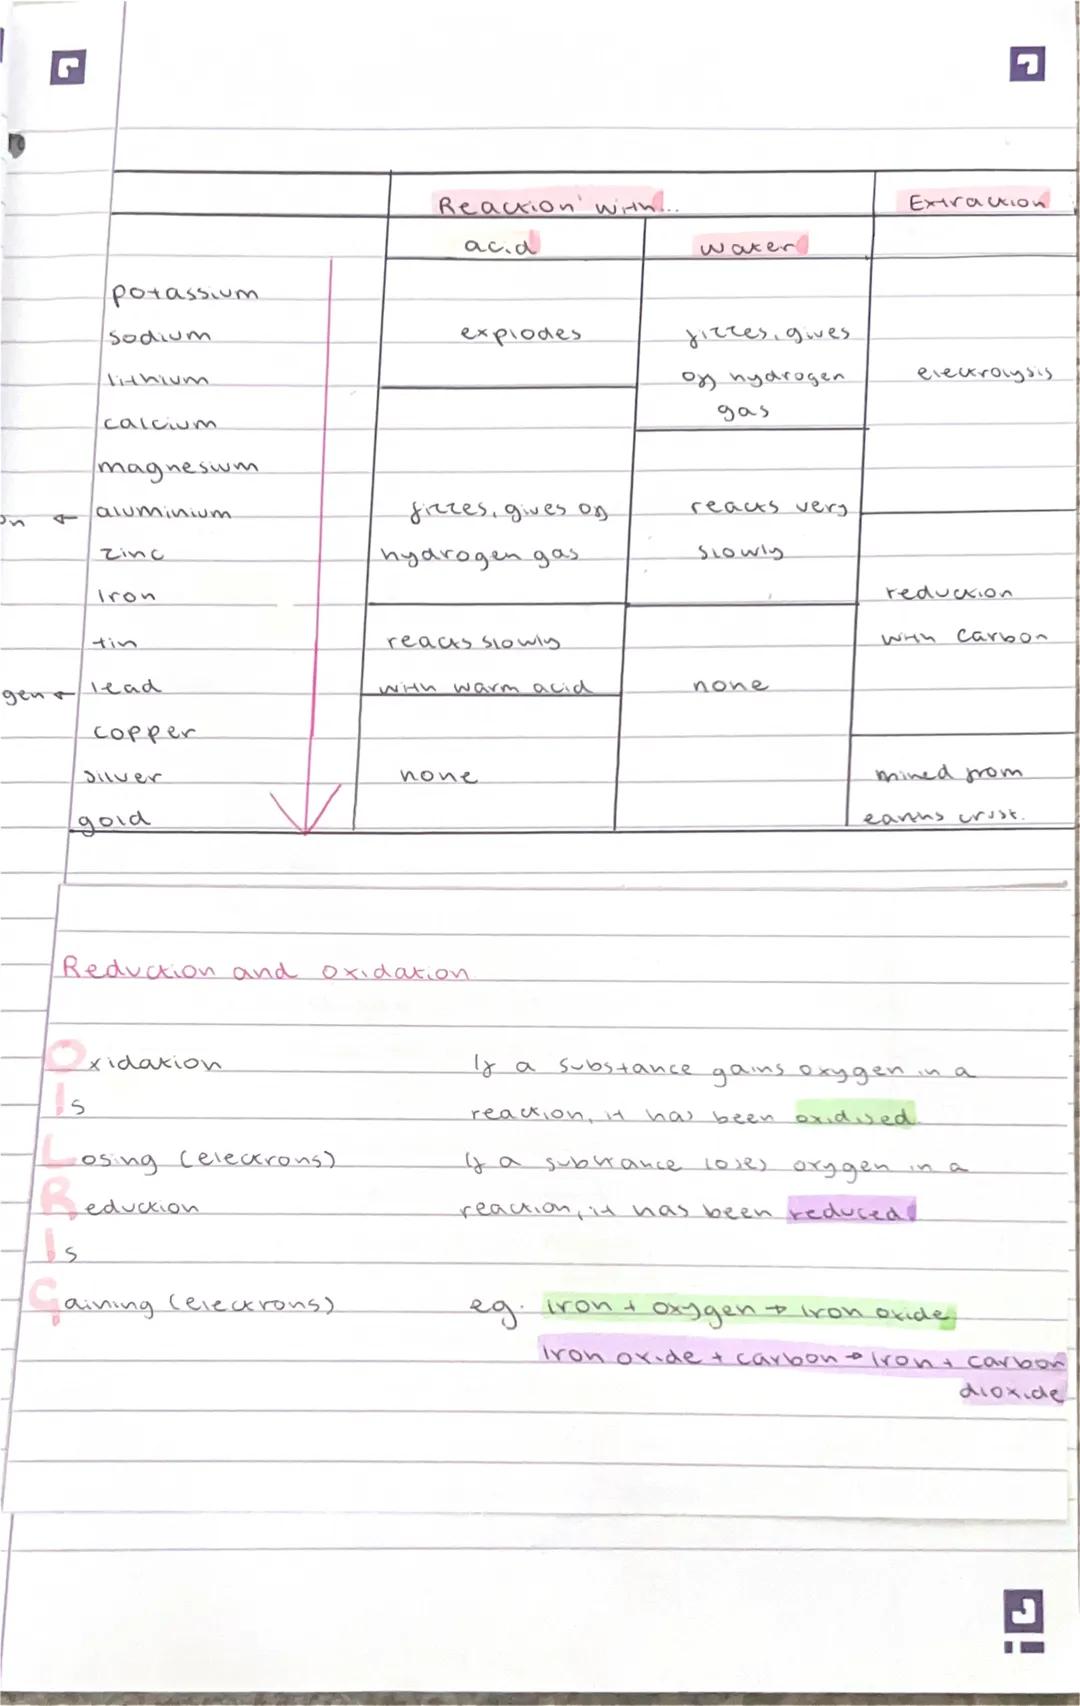 Reaction with...
Extraction
acid
water
potassium
sodium
explodes
fizzes, gives
lithium
off hydrogen
electrolysis
gas
calcium
magnesium
aluminium
fizzes, gives off
reacts very
zinc
hydrogen gas
slowly
Iron
reduction
tin
reacts slowly
with carbon
gen ← lead
with warm acid
none
copper
silver
none
mined from
gold
earths crust.
Reduction and oxidation
Oxidation
If a substance gains oxygen in a
Is
reaction, it has been oxidised.
Losing (electrons)
If a substance loses oxygen in a
Reduction
reaction, it has been reduced.
Is
Gaining (electrons)
eg. iron + oxygen → iron oxide
Iron oxide + carbon → Iron + carbon
dioxide